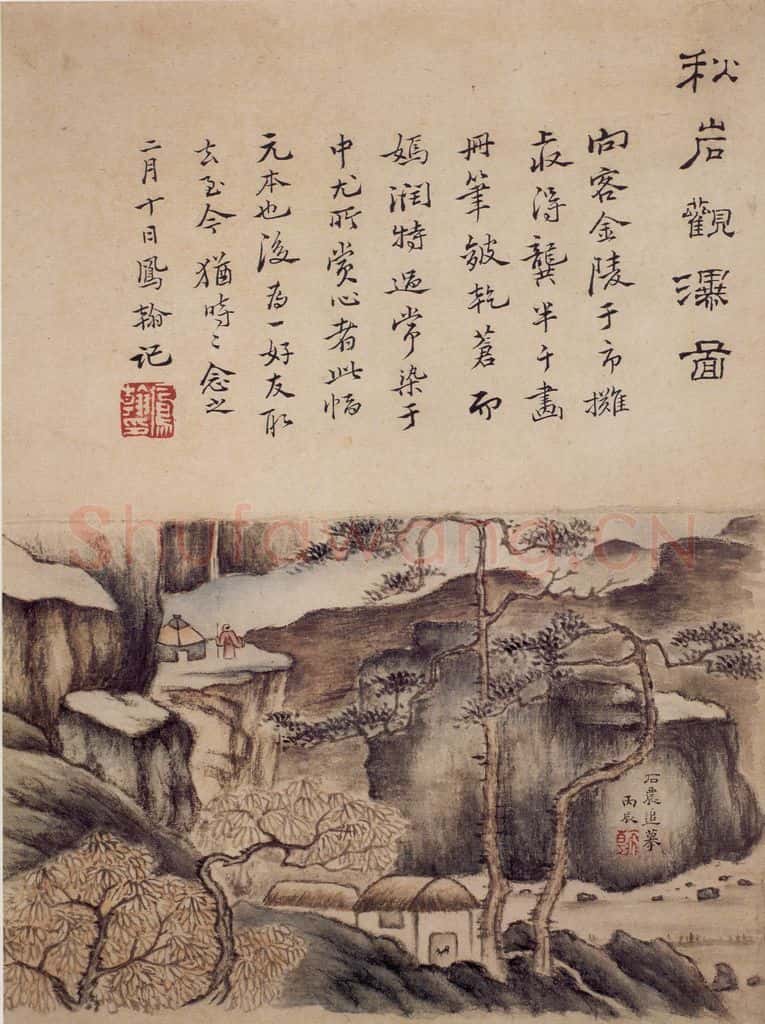 秋岩觀瀑圖
向客金陵于市攤
寂得龔半千畫
冊筆皴乾蒼而
嫣潤特過常染于
中尤所賞心者此幅
元本也後為一好友取
去至今猶時〻念之
二月十日鳳翰記
鳳翰印
石農追摹
丙辰
Shufawang.CN